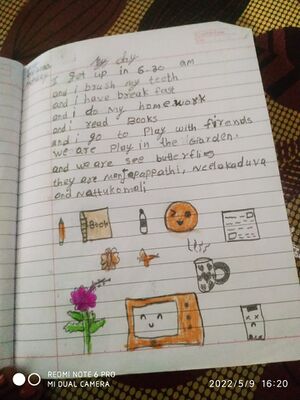 My day
I get up in 6-30 am
and i brush my teeth
and i have break fast
and i do my homework
and i read Books
and i go to Play with firends
we are Play in the Garden.
and we are see butterflies
they are manjapappathi, Neelakaduva
and Nattukomali
Book
REDMI NOTE 6 PRO
MI DUAL CAMERA
2022/5/9 16:20